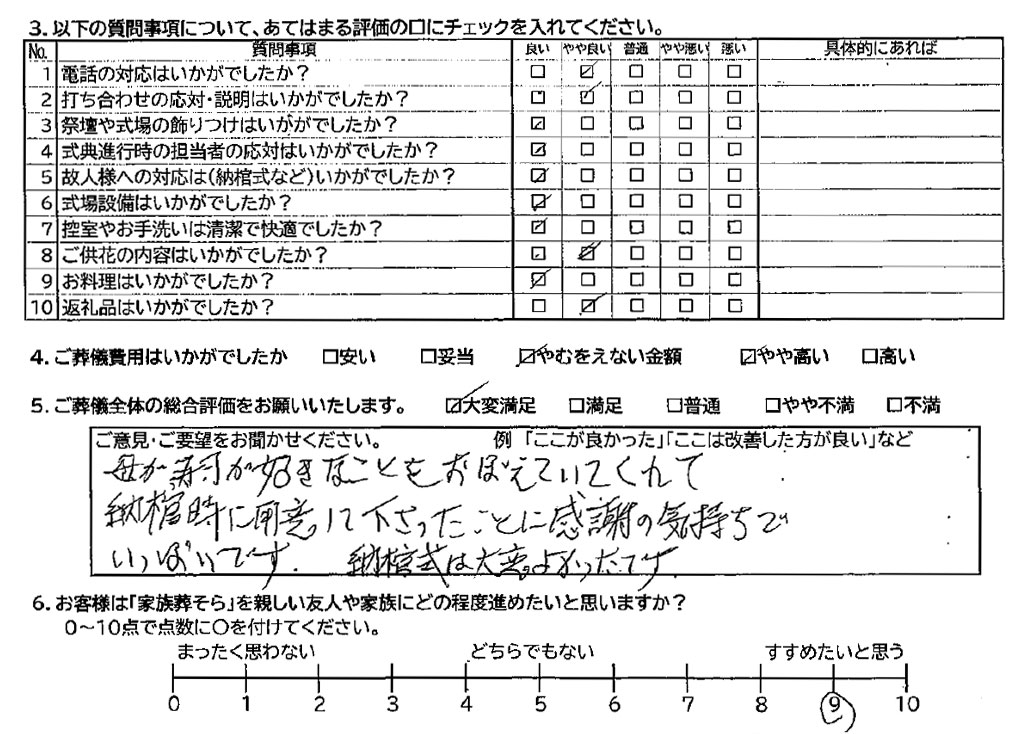 3. 以下の質問事項について、あてはまる評価の口にチェックを入れてください。
No. 質問事項 良い やや良い 普通 やや悪い 悪い 具体的にあれば
1 電話の対応はいかがでしたか？ □ ☑ □ □ □
2 打ち合わせの応対・説明はいかがでしたか？ □ ☑ □ □ □
3 祭壇や式場の飾りつけはいかがでしたか？ ☑ □ □ □ □
4 式典進行時の担当者の応対はいかがでしたか？ ☑ □ □ □ □
5 故人様への対応は(納棺式など)いかがでしたか？ ☑ □ □ □ □
6 式場設備はいかがでしたか？ ☑ □ □ □ □
7 控室やお手洗いは清潔で快適でしたか？ ☑ □ □ □ □
8 ご供花の内容はいかがでしたか？ □ ☑ □ □ □
9 お料理はいかがでしたか？ ☑ □ □ □ □
10 返礼品はいかがでしたか？ □ ☑ □ □ □
4. ご葬儀費用はいかがでしたか □安い □妥当 ☑やむをえない金額 ☑やや高い □高い
5. ご葬儀全体の総合評価をお願いいたします。 ☑大変満足 □満足 □普通 □やや不満 □不満
ご意見・ご要望をお聞かせください。 例 「ここが良かった」「ここは改善した方が良い」など
母が寿司が好きなことをおぼえていてくれて
納棺時に用意して下さったことに感謝の気持ちで
いっぱいです. 納棺式は大変よかったです.
6. お客様は「家族葬そら」を親しい友人や家族にどの程度進めたいと思いますか？
0～10点で点数に〇を付けてください。
まったく思わない どちらでもない すすめたいと思う
0 1 2 3 4 5 6 7 8 9 10